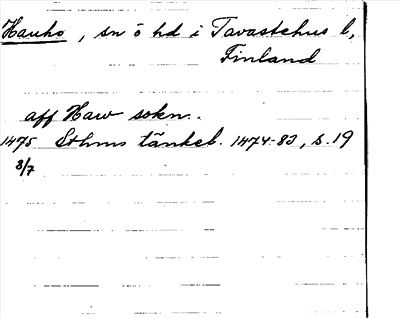 Hauho, sn o hd i Tavastehus l,
Finland
aff Haw sokn.
1475 Sthms tänkeb. 1474-83, s. 19
8/7